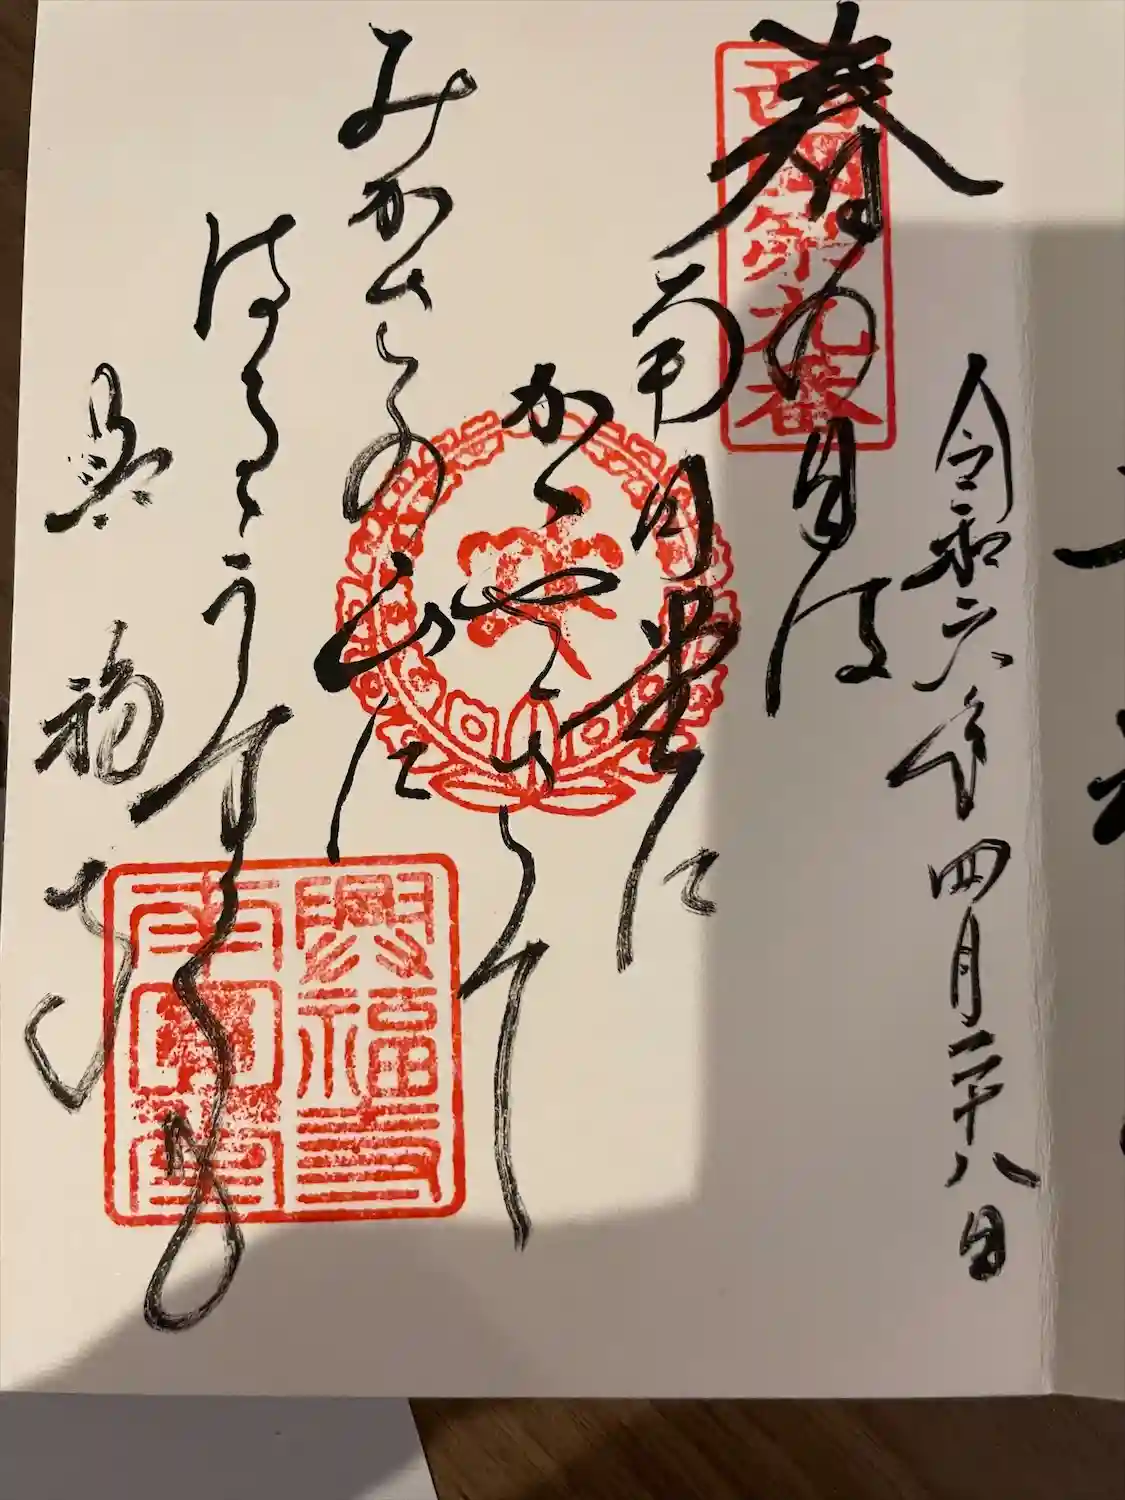 令和六年四月二十八日
春の日は
南円堂に
かゝやきて
みかさの山に
はるゝうすくも
興福寺
西国第九番
興福寺
南圓堂